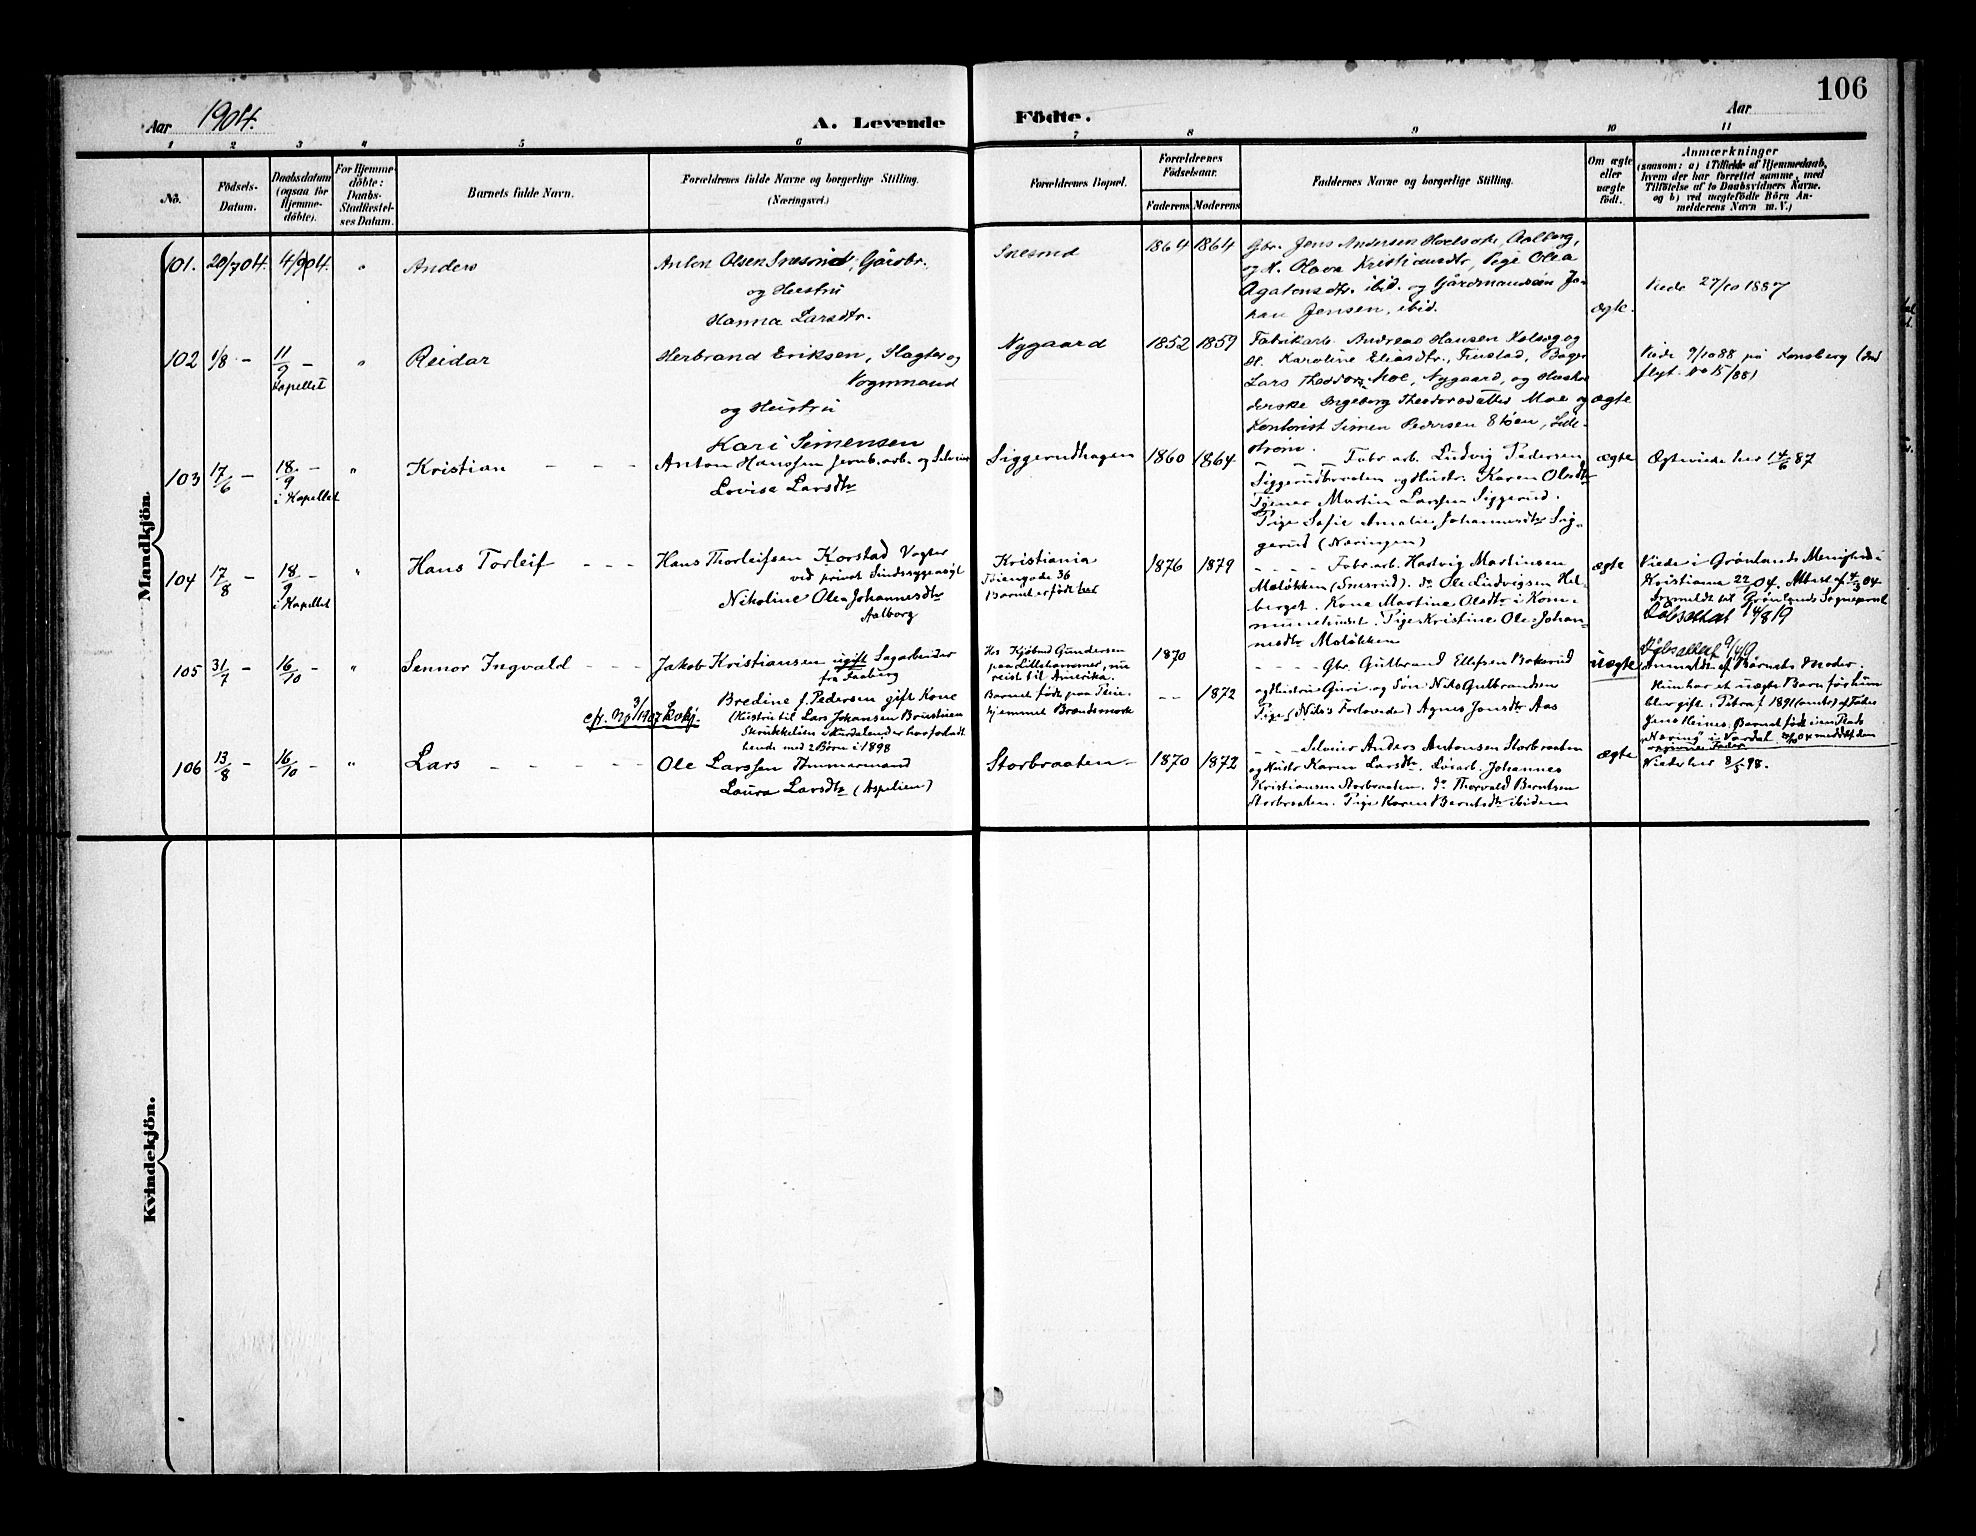 106
Aar 1904.
A. Levende Födte.
Aar
1 2 3 4 5 6 7 8 9 10 11
No.
Födsels-Datum.
Daabsdatum (ogsaa for Hjemme-döbte).
For Hjemme-döbte: Daabs-Stadfestel-ses Datum.
Barnets fulde Navn.
Forældrenes fulde Navne og borgerlige Stilling.
(Næringsvei.)
Forældrenes Bopæl.
Forældrenes Födselsaar.
Faderens Moderens
Faddernes Navne og borgerlige Stilling.
Om ægte eller uægte födt.
Anmærkninger
(saasom: a) i Tilfælde af Hjemmedaab,
hvem der har forrettet samme, med
Tilföielse af to Daabsvidners Navne.
og b) ved uægtefödte Börn An-
melderens Navn m. V.)
Mandkjön.
101. 20/7 04. 4/9 04. " Anders
Anton Olsen Snesrud, Gårdbr.,
og Hustru
Hanna Larsdtr.
Snesrud
1864 1864
Gbr. Jens Andersen Aalborg,
og H. Olava Kristiansdtr, Pige Olea
Agatonsdtr. ibid. og Gårdmandssön Jo-
han Jensen, ibid.
ægte.
Viede 27/10 1887
102 1/8 – 11/9 – Kapellet " Reidar
Herbrand Eriksen, Slagter og
Vognmand
og Hustru
Kari Simensen
Nygaard
1852 1859
Fabrikarb. Andreas Hansen Kolberg og
H. Karoline Eliasdtr, Trustad, Bager
Lars Theodor Moe, Nygaard, og Hushol-
derske Ingeborg Theodorsdatter Moe og
Kontorist Simen Pedersen Stöen, Lille-
ström.
ægte
Viede 9/10 88 på Tonsberg (ind
flyt. 15/88)
103 17/6 – 18/9 – i Kapellet " Kristian – – –
Anton Hanssen Jernb.arb. og Selveier
Lovise Larsdtr
Siggerudhagen
1860 1864
– Fabr arb. Ludvig Pedersen
Siggerudbraaten og Hustr. Karen Olsdtr
Tjener Martin Larssen Siggerud.
Pige Sofie Amalie Johannesdtr Sig-
gerud (Næringen)
ægte
Ægteviede her 14/6 87
104 17/8 – 18/9 – i Kapellet " Hans Torleif – – –
Hans Thorleifsen Korstad Vogter
ved privat Sindssygeasyl
Nikoline Olea Johannesdtr
Aalborg
Kristiania
Töiengade 36
Barnet er født her
1876 1879
– – – – Fabr. arb. Hartvig Martinsen
Moløkken (Snesrud). do Ole Ludvigsen Hel-
berget. Kone Martine Olsdtr i Kom-
munehuset. Pige Kristine Olea Johan-
nesdtr Moløkken
ægte
Viede i Grønlands Menighed i
Kristiania 22/ 04. Attest af 4/3 04
Indmeldt til Grønlands Sogneprest
Dåbsattest 14/8 19
105 31/7 – 16/10 – " Sennor Ingvald – – –
Jakob Kristiansen ugift Sagarbeider
fra Faaberg
Bredine f. Pedersen gift Kone
(Hustru til Lars Johansen Brustuen
Skrukkelien i Hurdalen der har forladt
hende med 2 Børn i 1898
cfr. No 3/1907 Lokj.
Hos Kjøbmd Gundersen
paa Lillehammer, nu
reist til Amerika.
Barnet født paa Pleie-
hjemmet Brændsmork
1870
– – 1872
– – – – Gbr. Gulbrand Ellefsen Bakerud
og Hustru Guri og Søn Nils Gulbrandsen
Pige (Nils's Forlovede) Agnes Jonsdtr Aas
uægte
Dåbsattest 9/1 19.
Anmeldt af Børnets Moder.
Hun har et uægte Barn før hun
blev gift: Petra f 1891 (omtr) af Fader
Jens Heines. Barnet født i en Plads
„Næring" i Vardal. 3/10 04 meddelt den
opgivne Fader
106 13/8 – 16/10 – " Lars – – – –
Ole Larssen Tømmermand
Laura Larsdtr (Aspelien)
Storbraaten –
1870 1872
– – – Selveier Anders Antonsen Storbraaten
og Hustr Karen Larsdtr. Løsarb. Johannes
Kristiansen Storbraaten. do Thorvald Berntsen
Storbraaten. Pige Karen Berntsdtr ibidem
ægte
Viede her 8/5 98.
Kvindekjön.